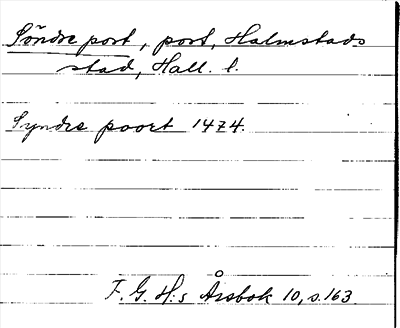 Söndre port, port, Halmstads
stad, Hall. l.
Syndre poort 1474.
F. G. H:s Årsbok 10, s. 163.